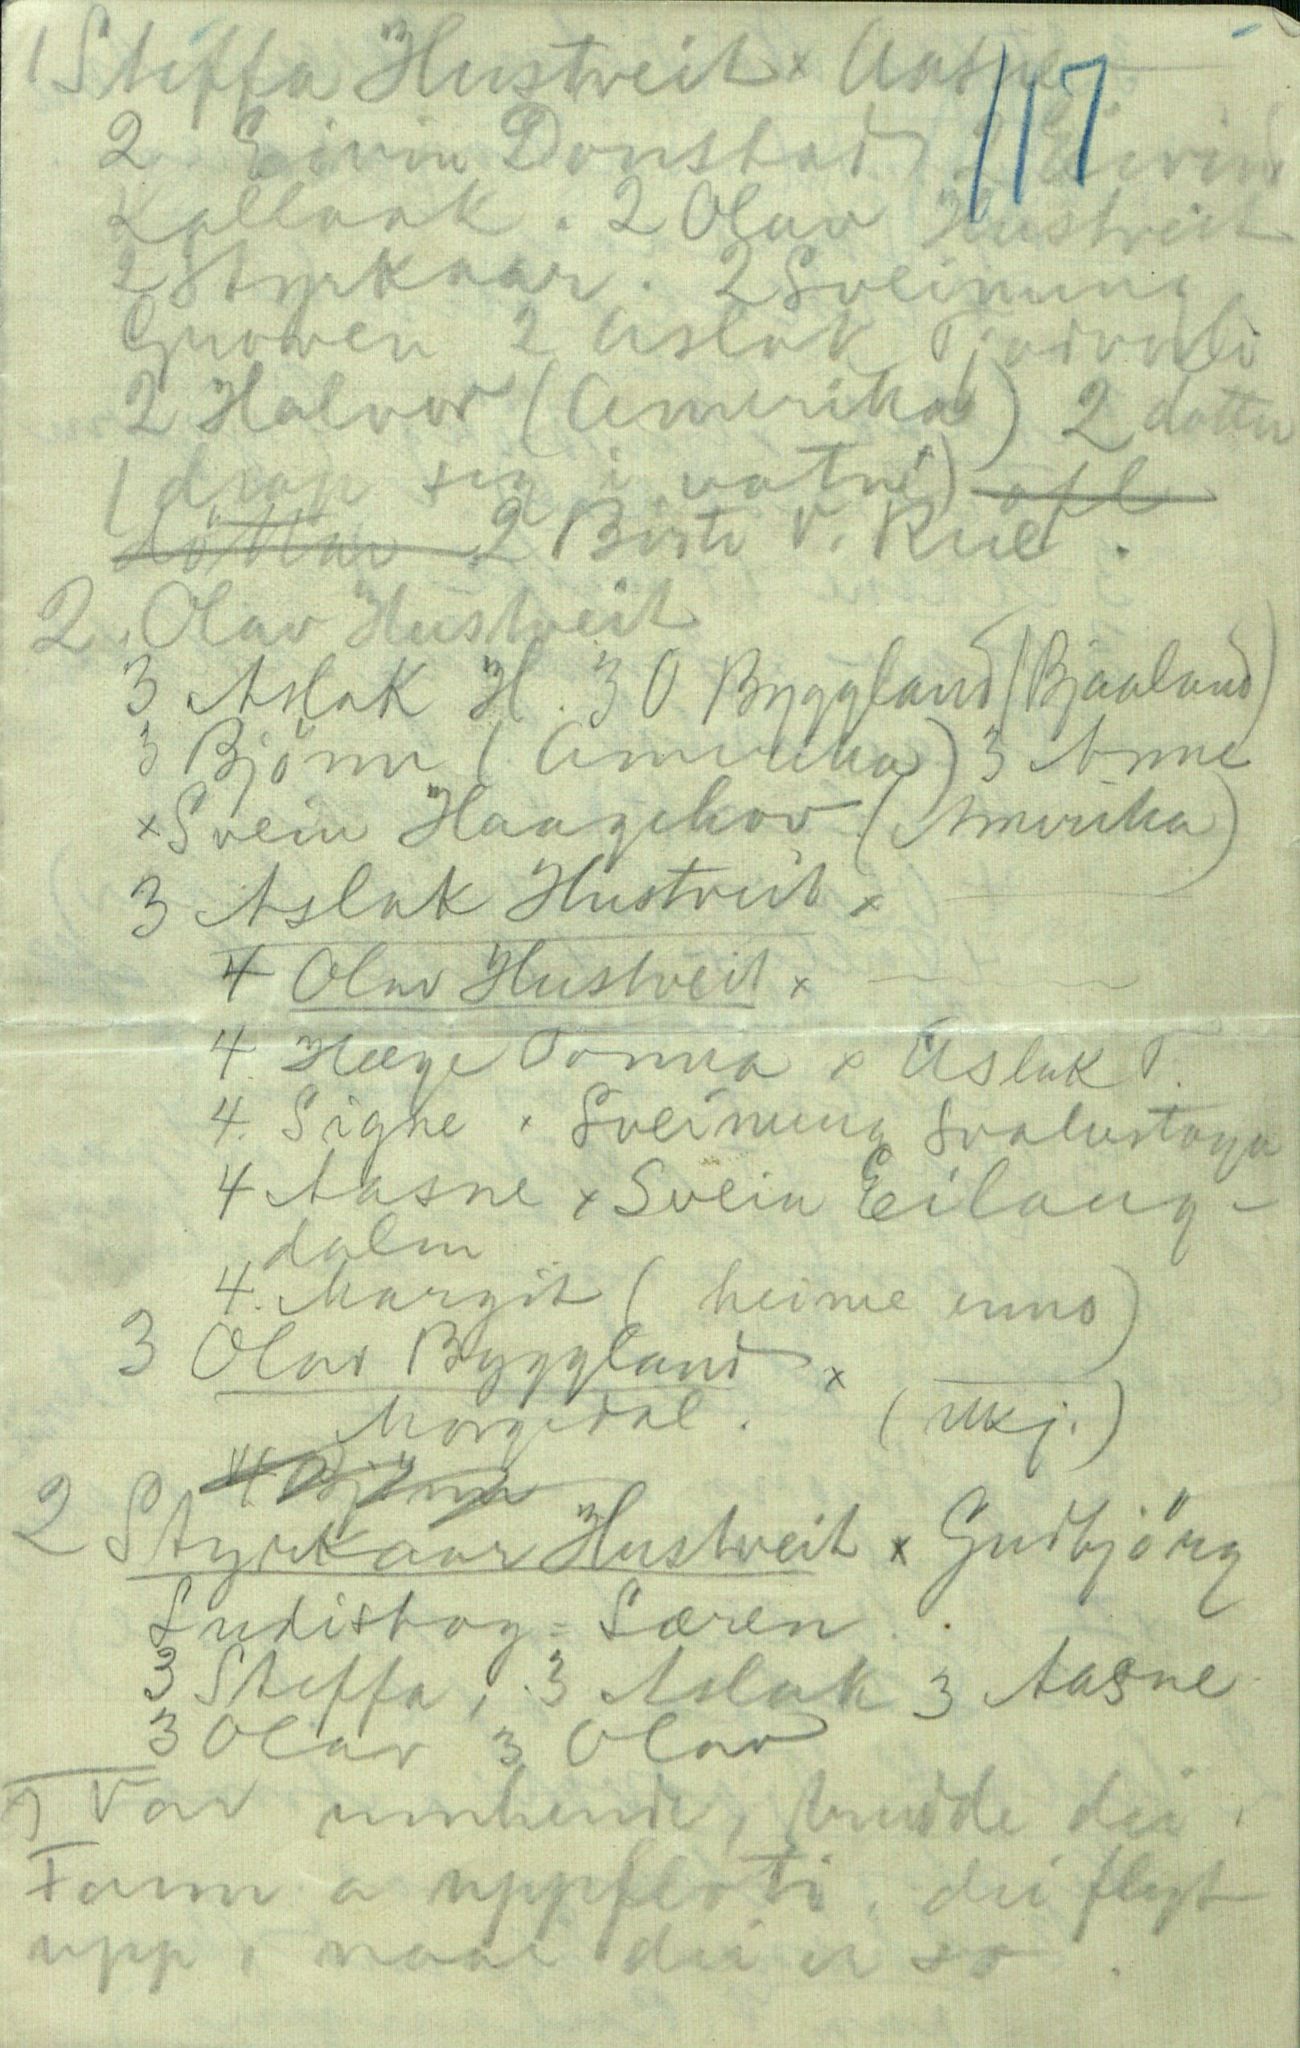 117
1 Steffa Hustveit x Aasne
2 Eivin Donstad 2 Eivind
Kallaak. 2 Olav Hustveit
2 Styrkaar. 2 Sveinung
Groven 2 Aslak
2 Halvor (Amerika) 2 dotter
(drap seg i vatne)
2 Birte V. Kiil.
2. Olav Hustveit
3 Aslak H. 3 O Byggland (Bjaaland)
3 Björn (Amerika) 3 Anne
x Svein Haagehov (Amerika)
3 Aslak Hustveit x
4 Olav Hustveit x
4. Hæge Tonna x Aslak T.
4. Signe x Sveinung Svalastoga
4 Aasne x Svein Eilang-
dalen
4. Margit (heime enno)
3 Olav Byggland x
Morgedal. (ukj.)
4 Björn
2 Styrkaar Hustveit x Gudbjörg
Sudistog = Særen.
3 Steffa, 3 Aslak 3 Aasne
3 Olav 3 Olav
dei
a dei flyt
upp, naar dei er so.